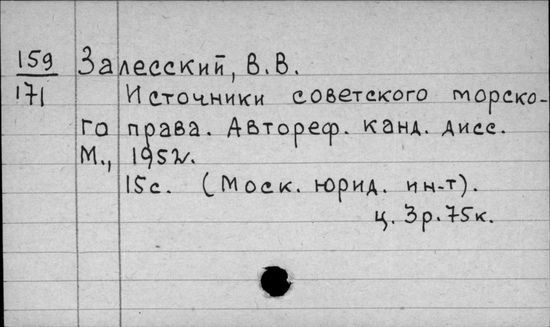 159 Залесский, В.В.
171 Источники советского морско-
го права. Автореф. канд. дисс.
М., 1952.
15с. (Моск. юрид. ин-т).
ц. 3р.75к.